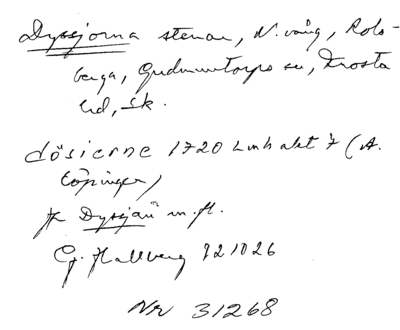 Dyssjorna stenar, N. vång, Rols-
berga, Gudmuntorps sn, Frosta
hd, Sk.
dösierne 1720 Lmh akt 7 (A.
Espinger)
jfr Dyssjan m.fl.
G. Hallberg 921026
Nr 31268